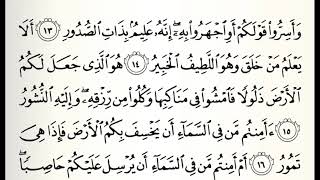 وَأَسِرُّوا۟ قَوْلَكُمْ أَوِ ٱجْهَرُوا۟ بِهِۦٓ ۖ إِنَّهُۥ عَلِيمٌۢ بِذَاتِ ٱلصُّدُورِ ١٣ أَلَا
يَعْلَمُ مَنْ خَلَقَ وَهُوَ ٱللَّطِيفُ ٱلْخَبِيرُ ١٤ هُوَ ٱلَّذِى جَعَلَ لَكُمُ
ٱلْأَرْضَ ذَلُولًا فَٱمْشُوا۟ فِى مَنَاكِبِهَا وَكُلُوا۟ مِن رِّزْقِهِۦ ۖ وَإِلَيْهِ ٱلنُّشُورُ
١٥ ءَأَمِنتُم مَّن فِى ٱلسَّمَآءِ أَن يَخْسِفَ بِكُمُ ٱلْأَرْضَ فَإِذَا هِىَ
تَمُورُ ١٦ أَمْ أَمِنتُم مَّن فِى ٱلسَّمَآءِ أَن يُرْسِلَ عَلَيْكُمْ حَاصِبًا ۖ